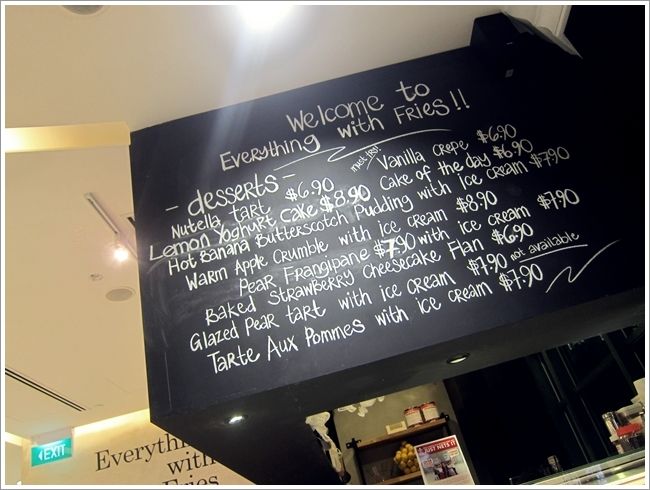 Welcome to
Everything with Fries!!
- desserts -
Nutella tart $6.90
must try! Vanilla crepe $6.90
Lemon Yoghurt cake $8.90
Cake of the day $6.90
Hot Banana Butterscotch Pudding with ice cream $7.90
Warm Apple Crumble with ice cream $8.90
Pear Frangipane $7.90 with ice cream $7.90
Baked Strawberry Cheesecake Flan $6.90
Glazed Pear tart with ice cream $7.90 not available
Tarte Aux Pommes with ice cream $7.90
EXIT
Everythin
with
Fries
JUST NETS IT